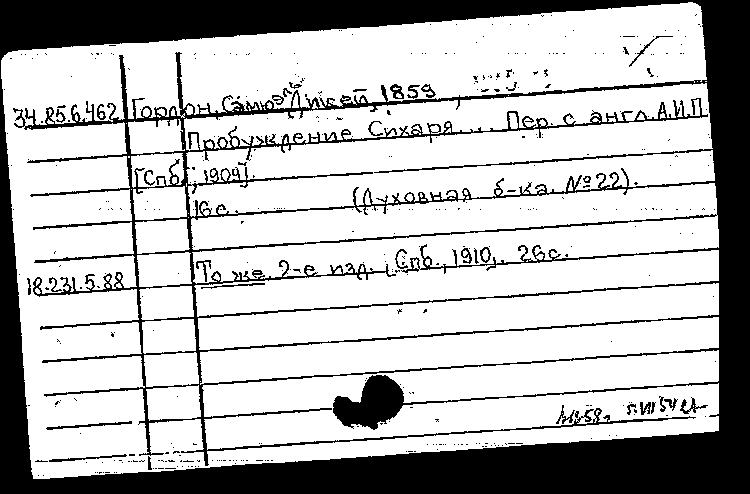 34.85.6.462 Гордон, Самюэль Джей, 1859
Пробуждение Сихаря... Пер. с англ. А.И.П.
[Спб., 1909].
16 с. (Духовная б-ка. №22).
18.231.5.88 То же. 2-е изд., Спб., 1910,. 26 с.